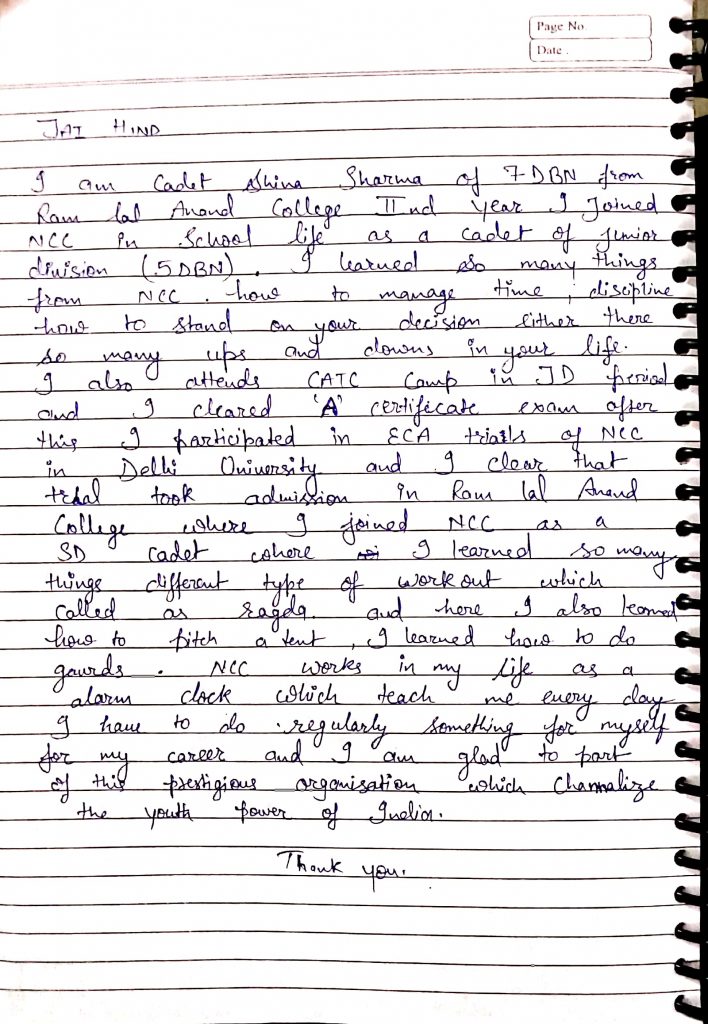 Page No.
Date.
JAI HIND
I am Cadet Shina Sharma of 7 DBN from
Ram lal Anand College IInd year I Joined
NCC in School life as a cadet of junior
division (5 DBN). I learned so many things
from NCC. how to manage time, discipline
how to stand on your decision either there
so many ups and downs in your life.
I also attends CATC Camp in JD period
and I cleared 'A' certificate exam after
this I participated in ECA trails of NCC
in Delhi University and I clear that
trial took admission in Ram lal Anand
College where I joined NCC as a
SD cadet where I learned so many
things different type of workout which
called as ragda. and here I also learned
how to pitch a tent, I learned how to do
gaurds. NCC works in my life as a
alarm clock which teach me every day
I have to do regularly something for myself
for my career and I am glad to part
of this prestigious organisation which Channalize
the youth power of India.
Thank you.